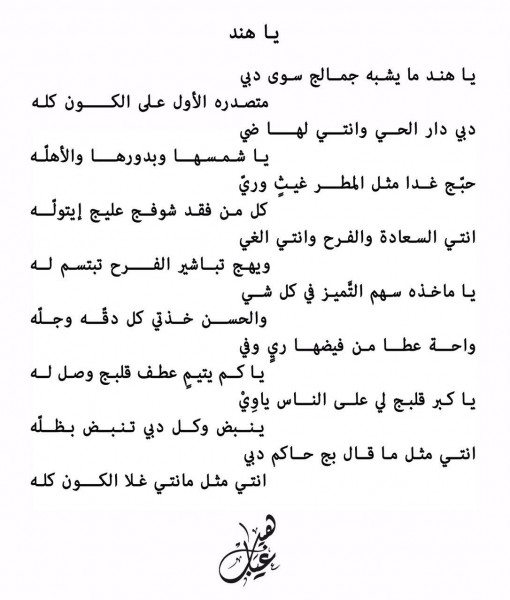 يا هند
يا هند ما يشبه جمالج سوى دبي
متصدره الأول على الكون كله
دبي دار الحي وانتي لها ضي
يا شمسها وبدورها والأهلّه
حبّج غدا مثل المطر غيثٍ وريّ
كل من فقد شوفج عليج إيتولّه
انتي السعادة والفرح وانتي الغي
ويهج تباشير الفرح تبتسم له
يا ماخذه سهم التَّميز في كل شي
والحسن خذتي كل دقّه وجلّه
واحة عطا من فيضها ريٍ وفي
يا كم يتيمٍ عطف قلبج وصل له
يا كبر قلبج لي على الناس ياوِيْ
ينبض وكل دبي تنبض بظلّه
انتي مثل ما قال بج حاكم دبي
انتي مثل مانتي غلا الكون كله